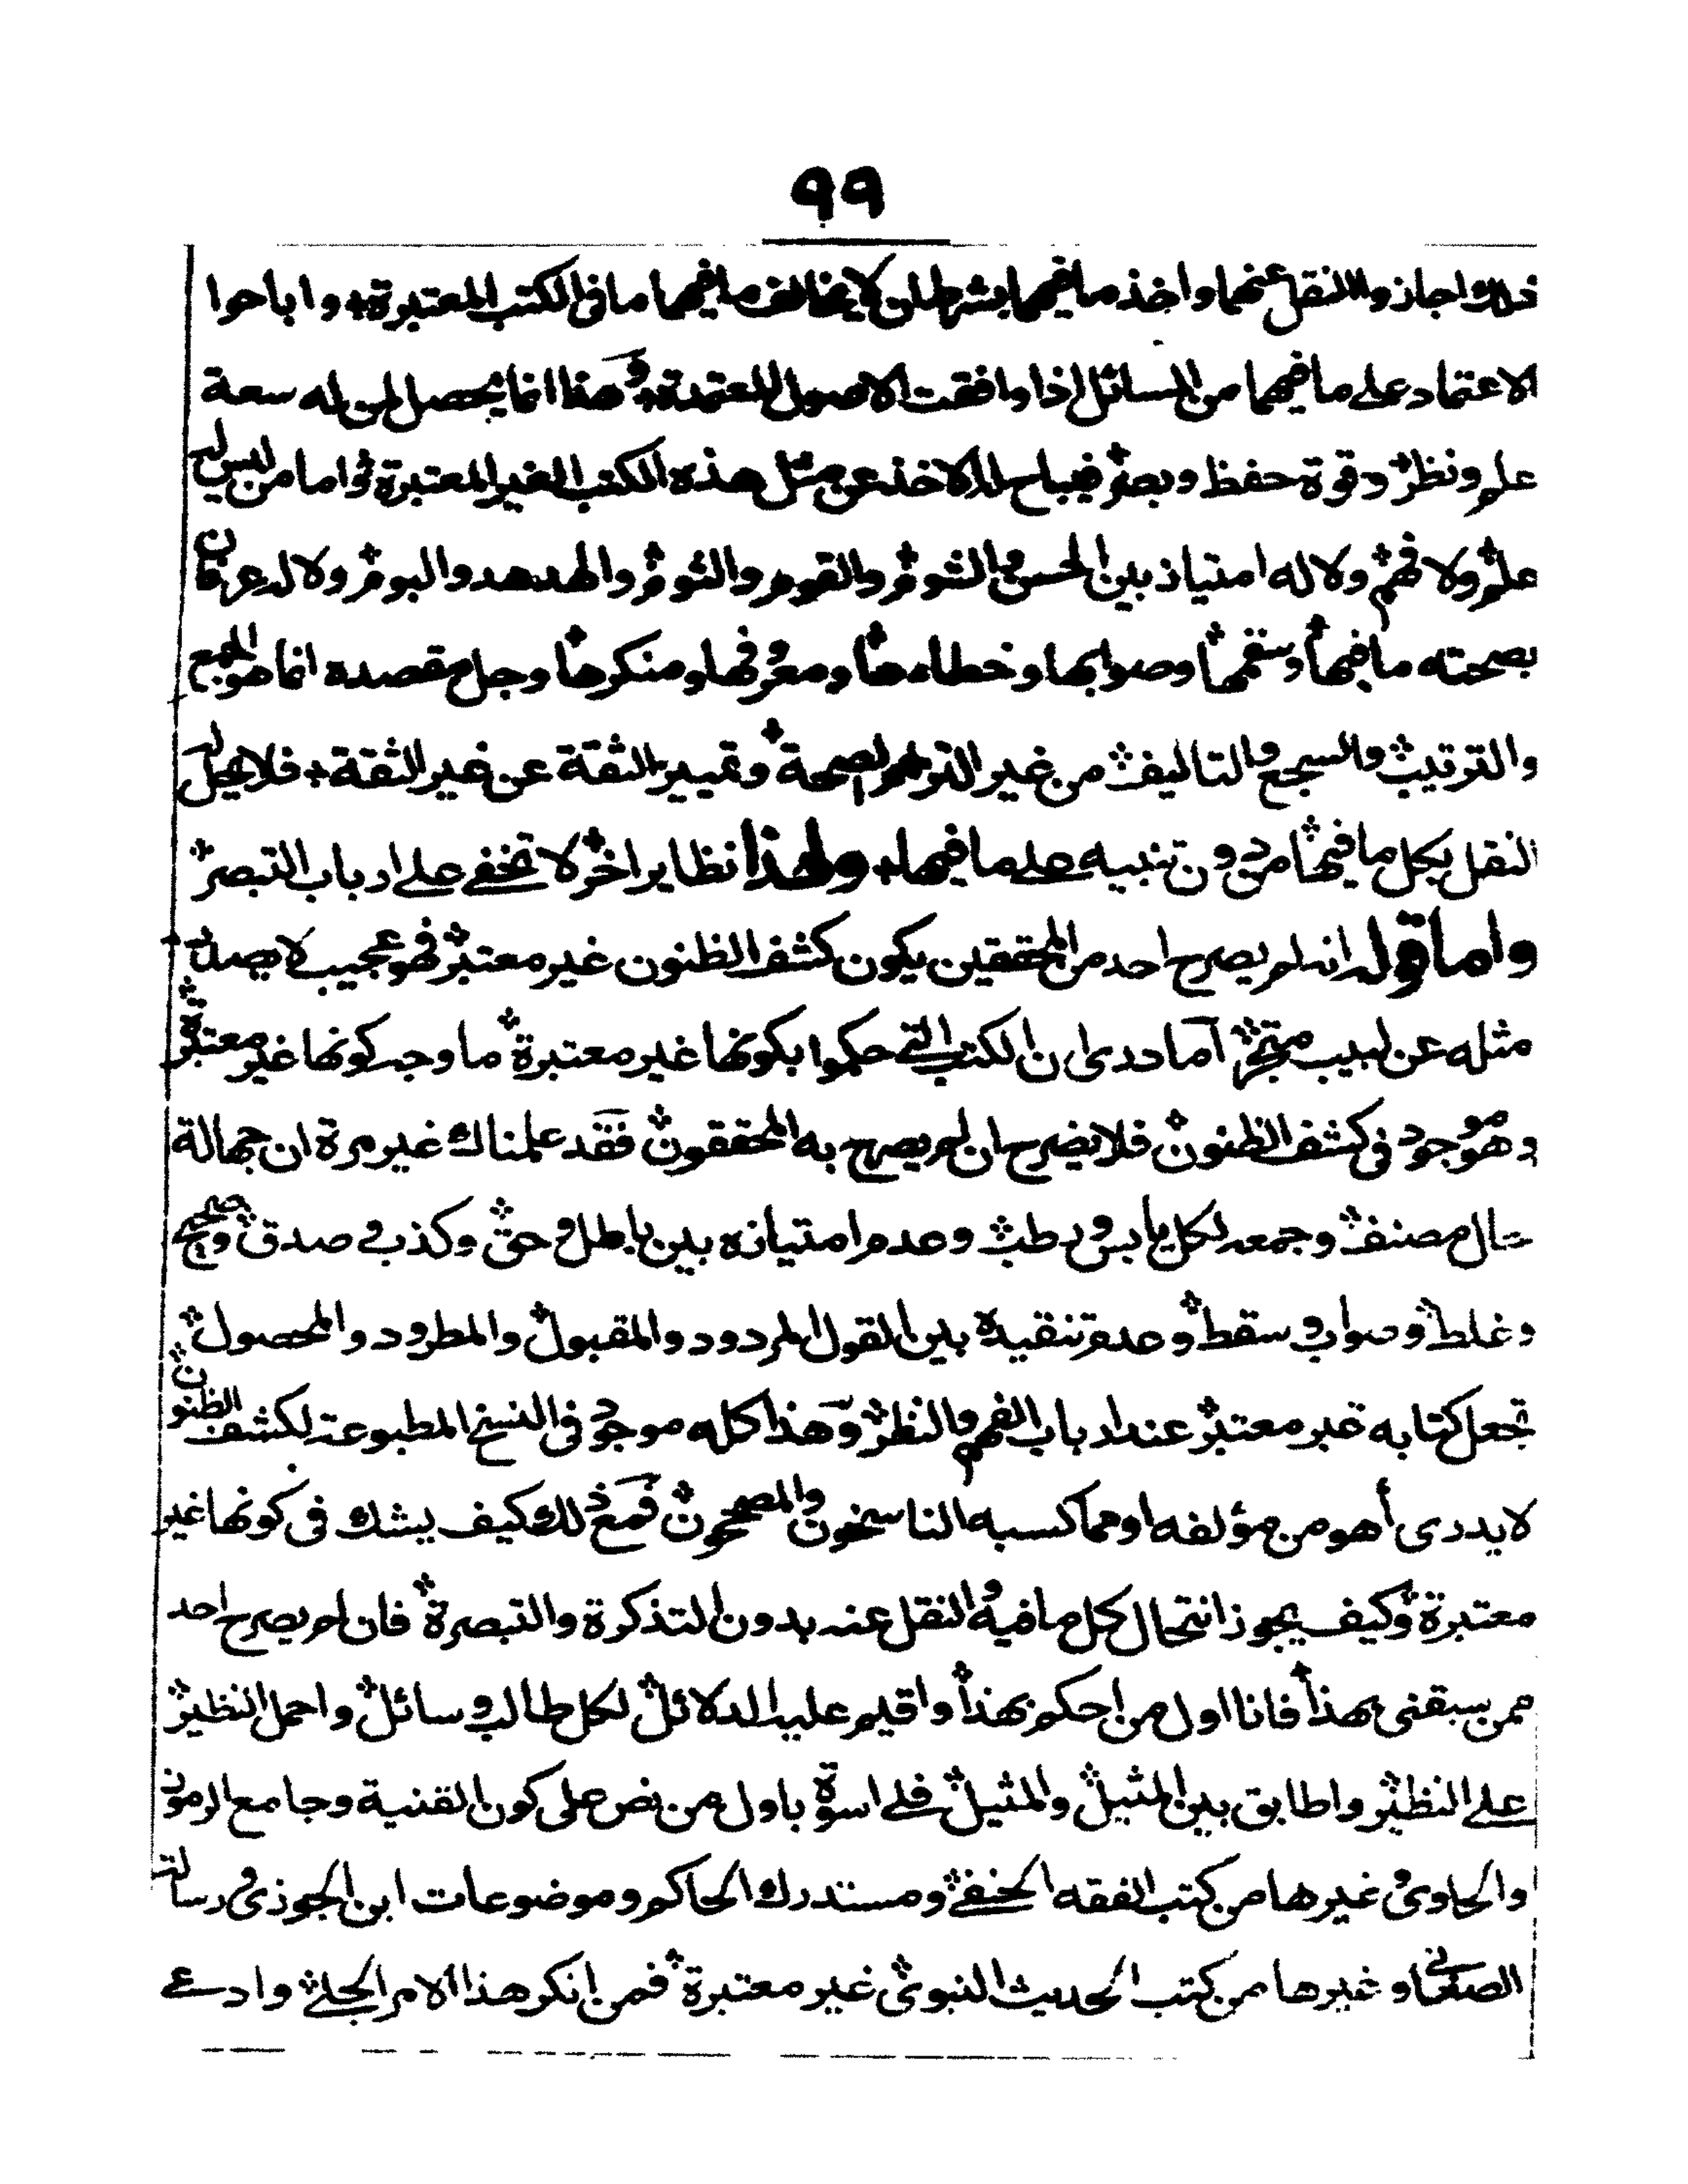 ٩٩
ذلك واجازوا النقل عنها واخذ ما فيها بشرط ان لا يخالف ما فيها ما فى الكتب المعتبرة وا باحوا
الاعتماد على ما فيها من المسائل اذا وافقت الاصول المعتمدة وهذا انما يحصل لمن له سعة
علم ونظر وقوة حفظ وبصر فيباح له الاخذ عن مثل هذه الكتب الغير المعتبرة واما من ليس له
علم ولا فهم ولا له امتياز بين الحسن والشوم والقوم والثوم والهدهد والبوم ولا له عرفان
بصحته ما فيها وسقمها وصوابها وخطاءها ومعروفها ومنكرها وجل مقصده انما هو الجمع
والترتيب والسجع والتاليف من غير التزام الصحة وتمييز الثقة عن غير الثقة فلا يحل له
النقل بكل ما فيها من دون تنبيه على ما فيها ولهذا نظاير اخر لا تخفى على ارباب التبصر
واما قوله انه لم يصرح احد من المحققين بكون كشف الظنون غير معتبر فهو عجيب لا يصدر
مثله عن لبيب متبحر آما درى ان الكتب التى حكموا بكونها غير معتبرة ما وجه كونها غير معتبرة
وهو موجود فى كشف الظنون فلا يضر ح ان لم يصرح به المحققون فقد علمناك غير مرة ان جهالة
حال مصنف وجمعه لكل يابس ورطب وعدم امتيازه بين باطل وحق وكذب وصدق وصحيح
وغلط وصواب وسقط وعدم تنقيده بين القول المردود والمقبول والمطرود والمحصول
تجعل كتابه غير معتبر عند ارباب الفهم والنظر وهذا كله موجود فى النسخ المطبوعة لكشف الظنون
لا يدرى أهو من مؤلفه او مما كسبه الناسخون والمصححون فمع ذلك كيف يشك فى كونها غير
معتبرة وكيف يجوز انتحال كل ما فيه والنقل عنه بدون التذكرة والتبصرة فان لم يصرح احد
ممن سبقنى بهذا فانا اول من احكم بهذا واقيم عليه الدلائل لكل طالب وسائل واحمل النظير
على النظير واطابق بين المثيل والمثيل فلى اسوة باول من نص على كون القنية وجامع الرموز
والحاوى وغيرها من كتب الفقه الحنفى ومستدرك الحاكم وموضوعات ابن الجوزى ورسالة
الصغانى وغيرها من كتب الحديث النبوى غير معتبرة فمن انكر هذا الامر الجلى وادعى